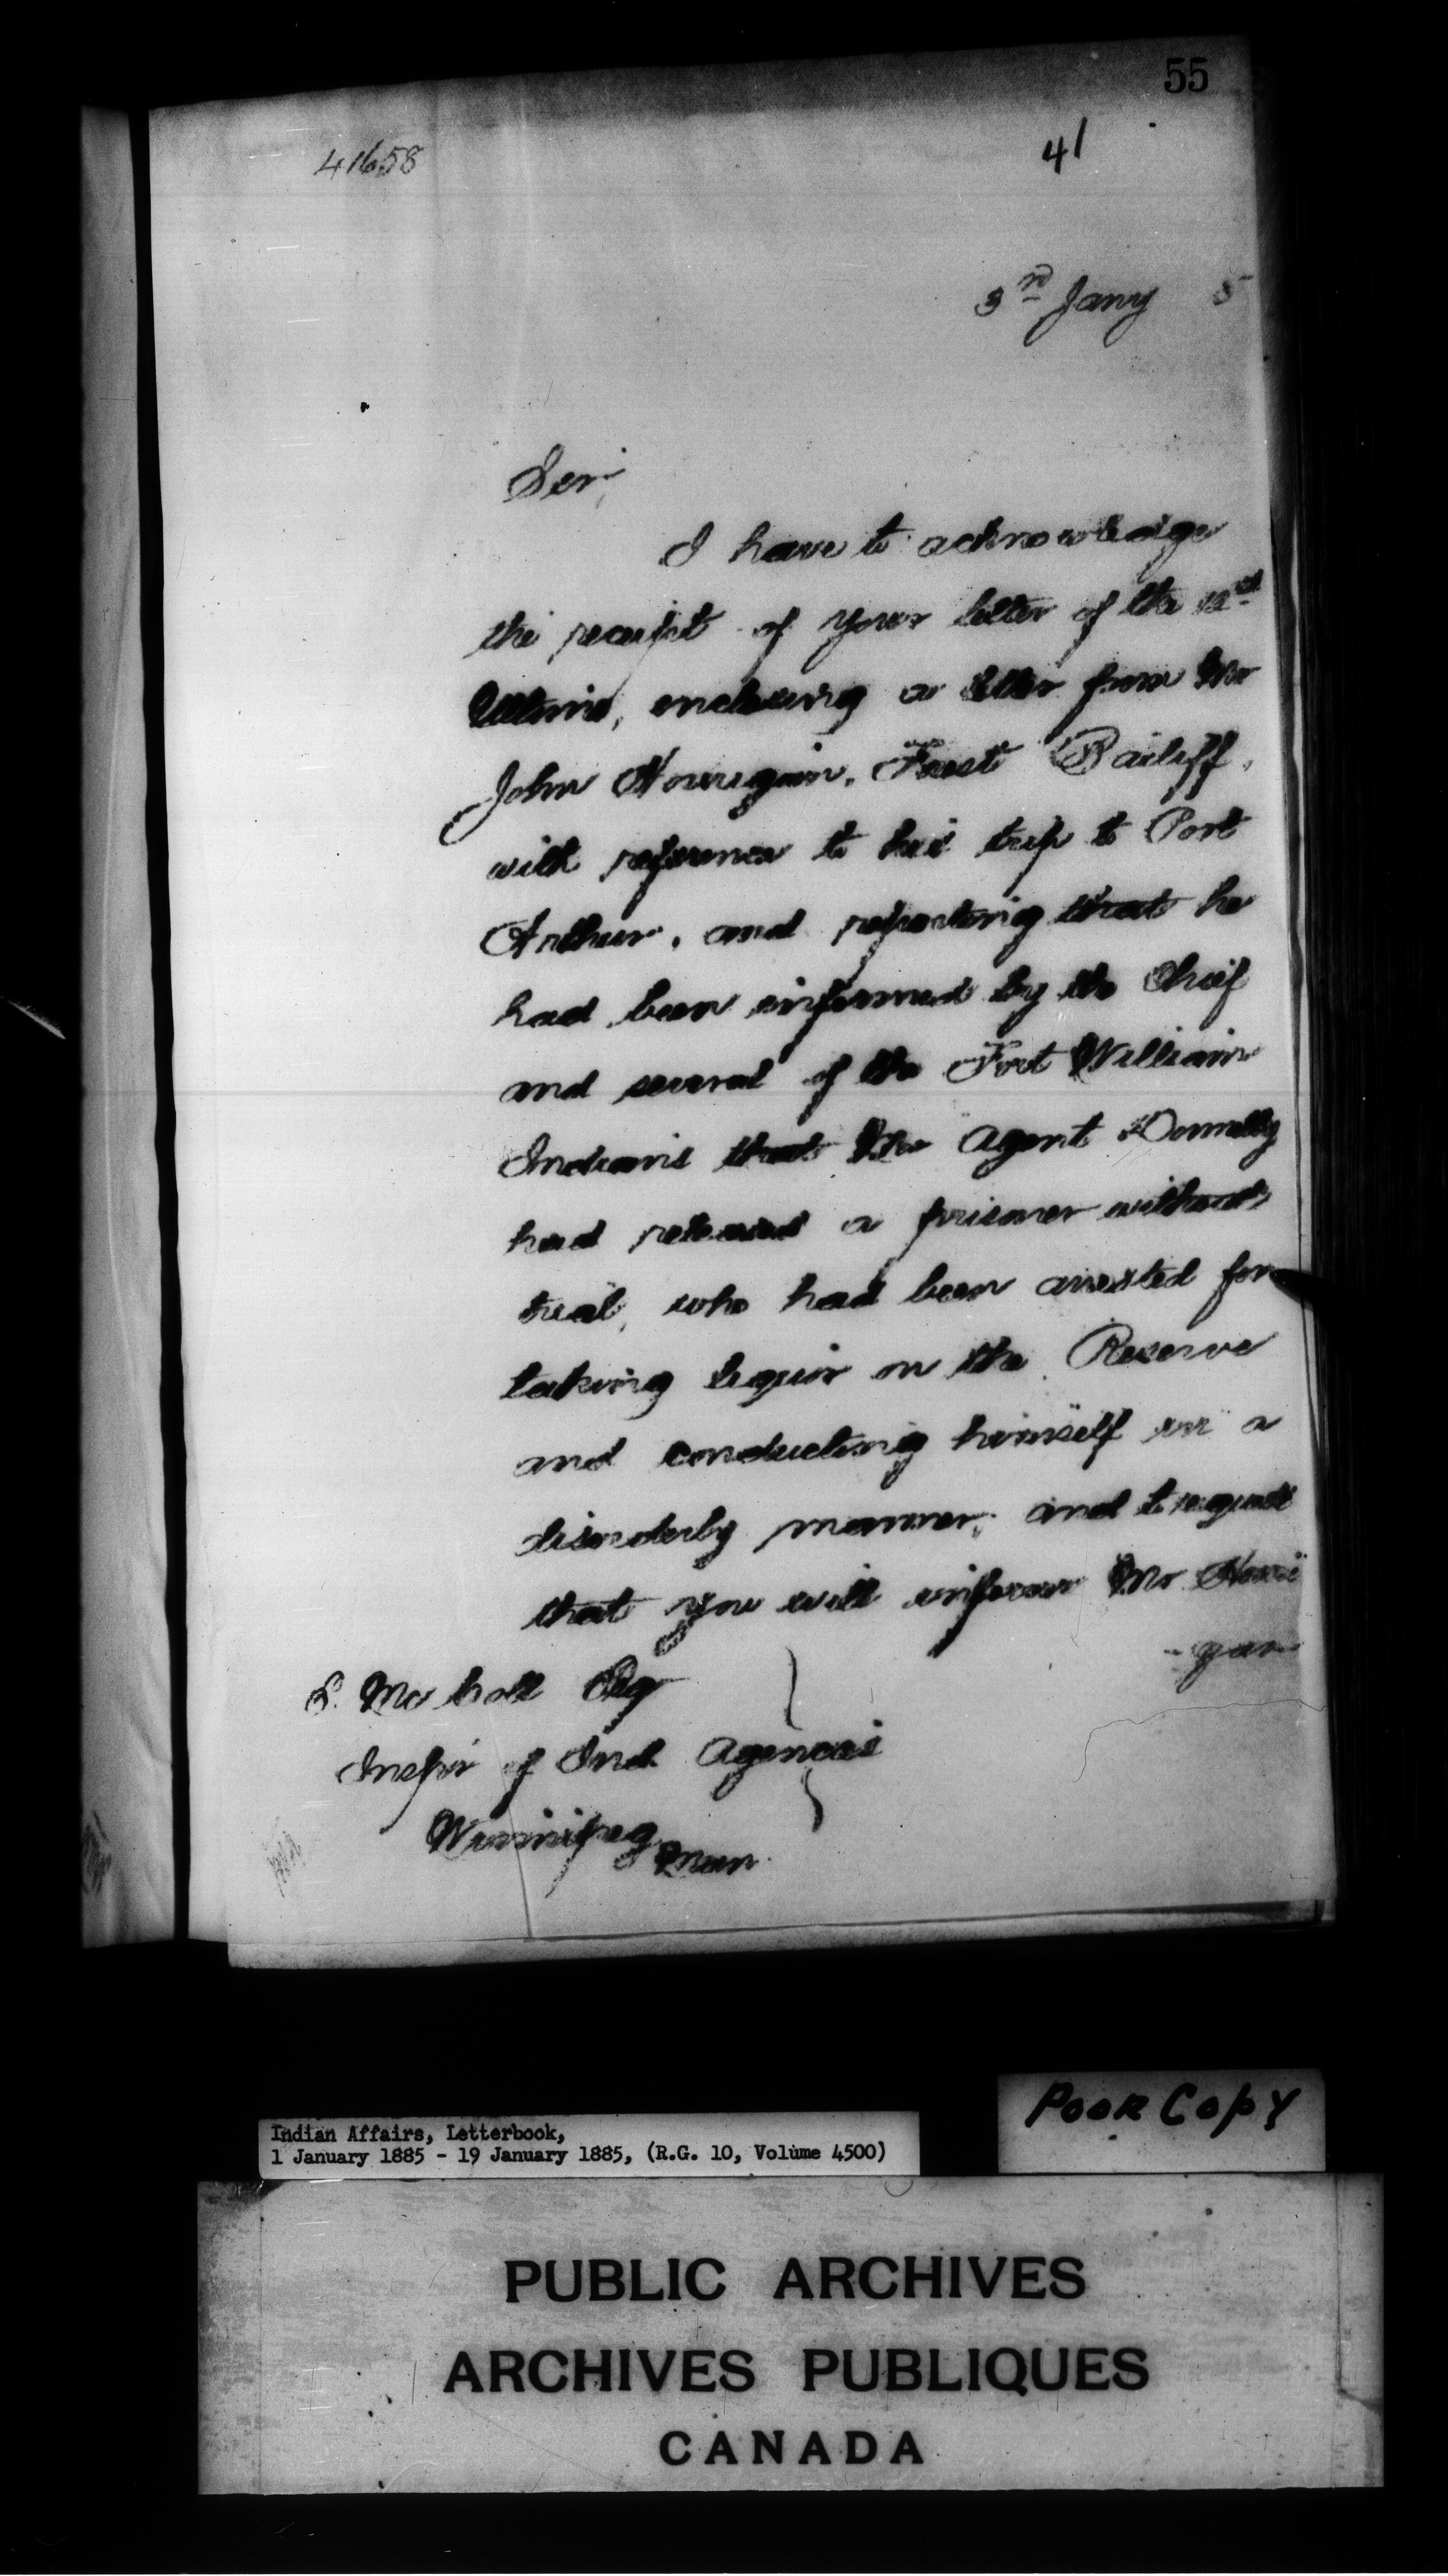 55
41
41658
3rd Jany 5
Sir,
I have to acknowledge
the receipt of your letter of the
Ultimo, enclosing a letter from Mr
John Hourigan, Bailiff,
with reference to his trip to Port
Arthur, and reporting that he
had been informed by the Chief
and several of the Fort William
Indians that the Agent Donnelly
had released a prisoner without
trial, who had been arrested for
taking liquor on the Reserve
and conducting himself in a
disorderly manner, and to request
that you will inform Mr Houri
-gan
E. McColl Esq
Inspr of Ind. Agencies
Winnipeg
Man.
Indian Affairs, Letterbook,
1 January 1885 - 19 January 1885, (R.G. 10, Volume 4500)
POOR COPY
PUBLIC ARCHIVES
ARCHIVES PUBLIQUES
CANADA